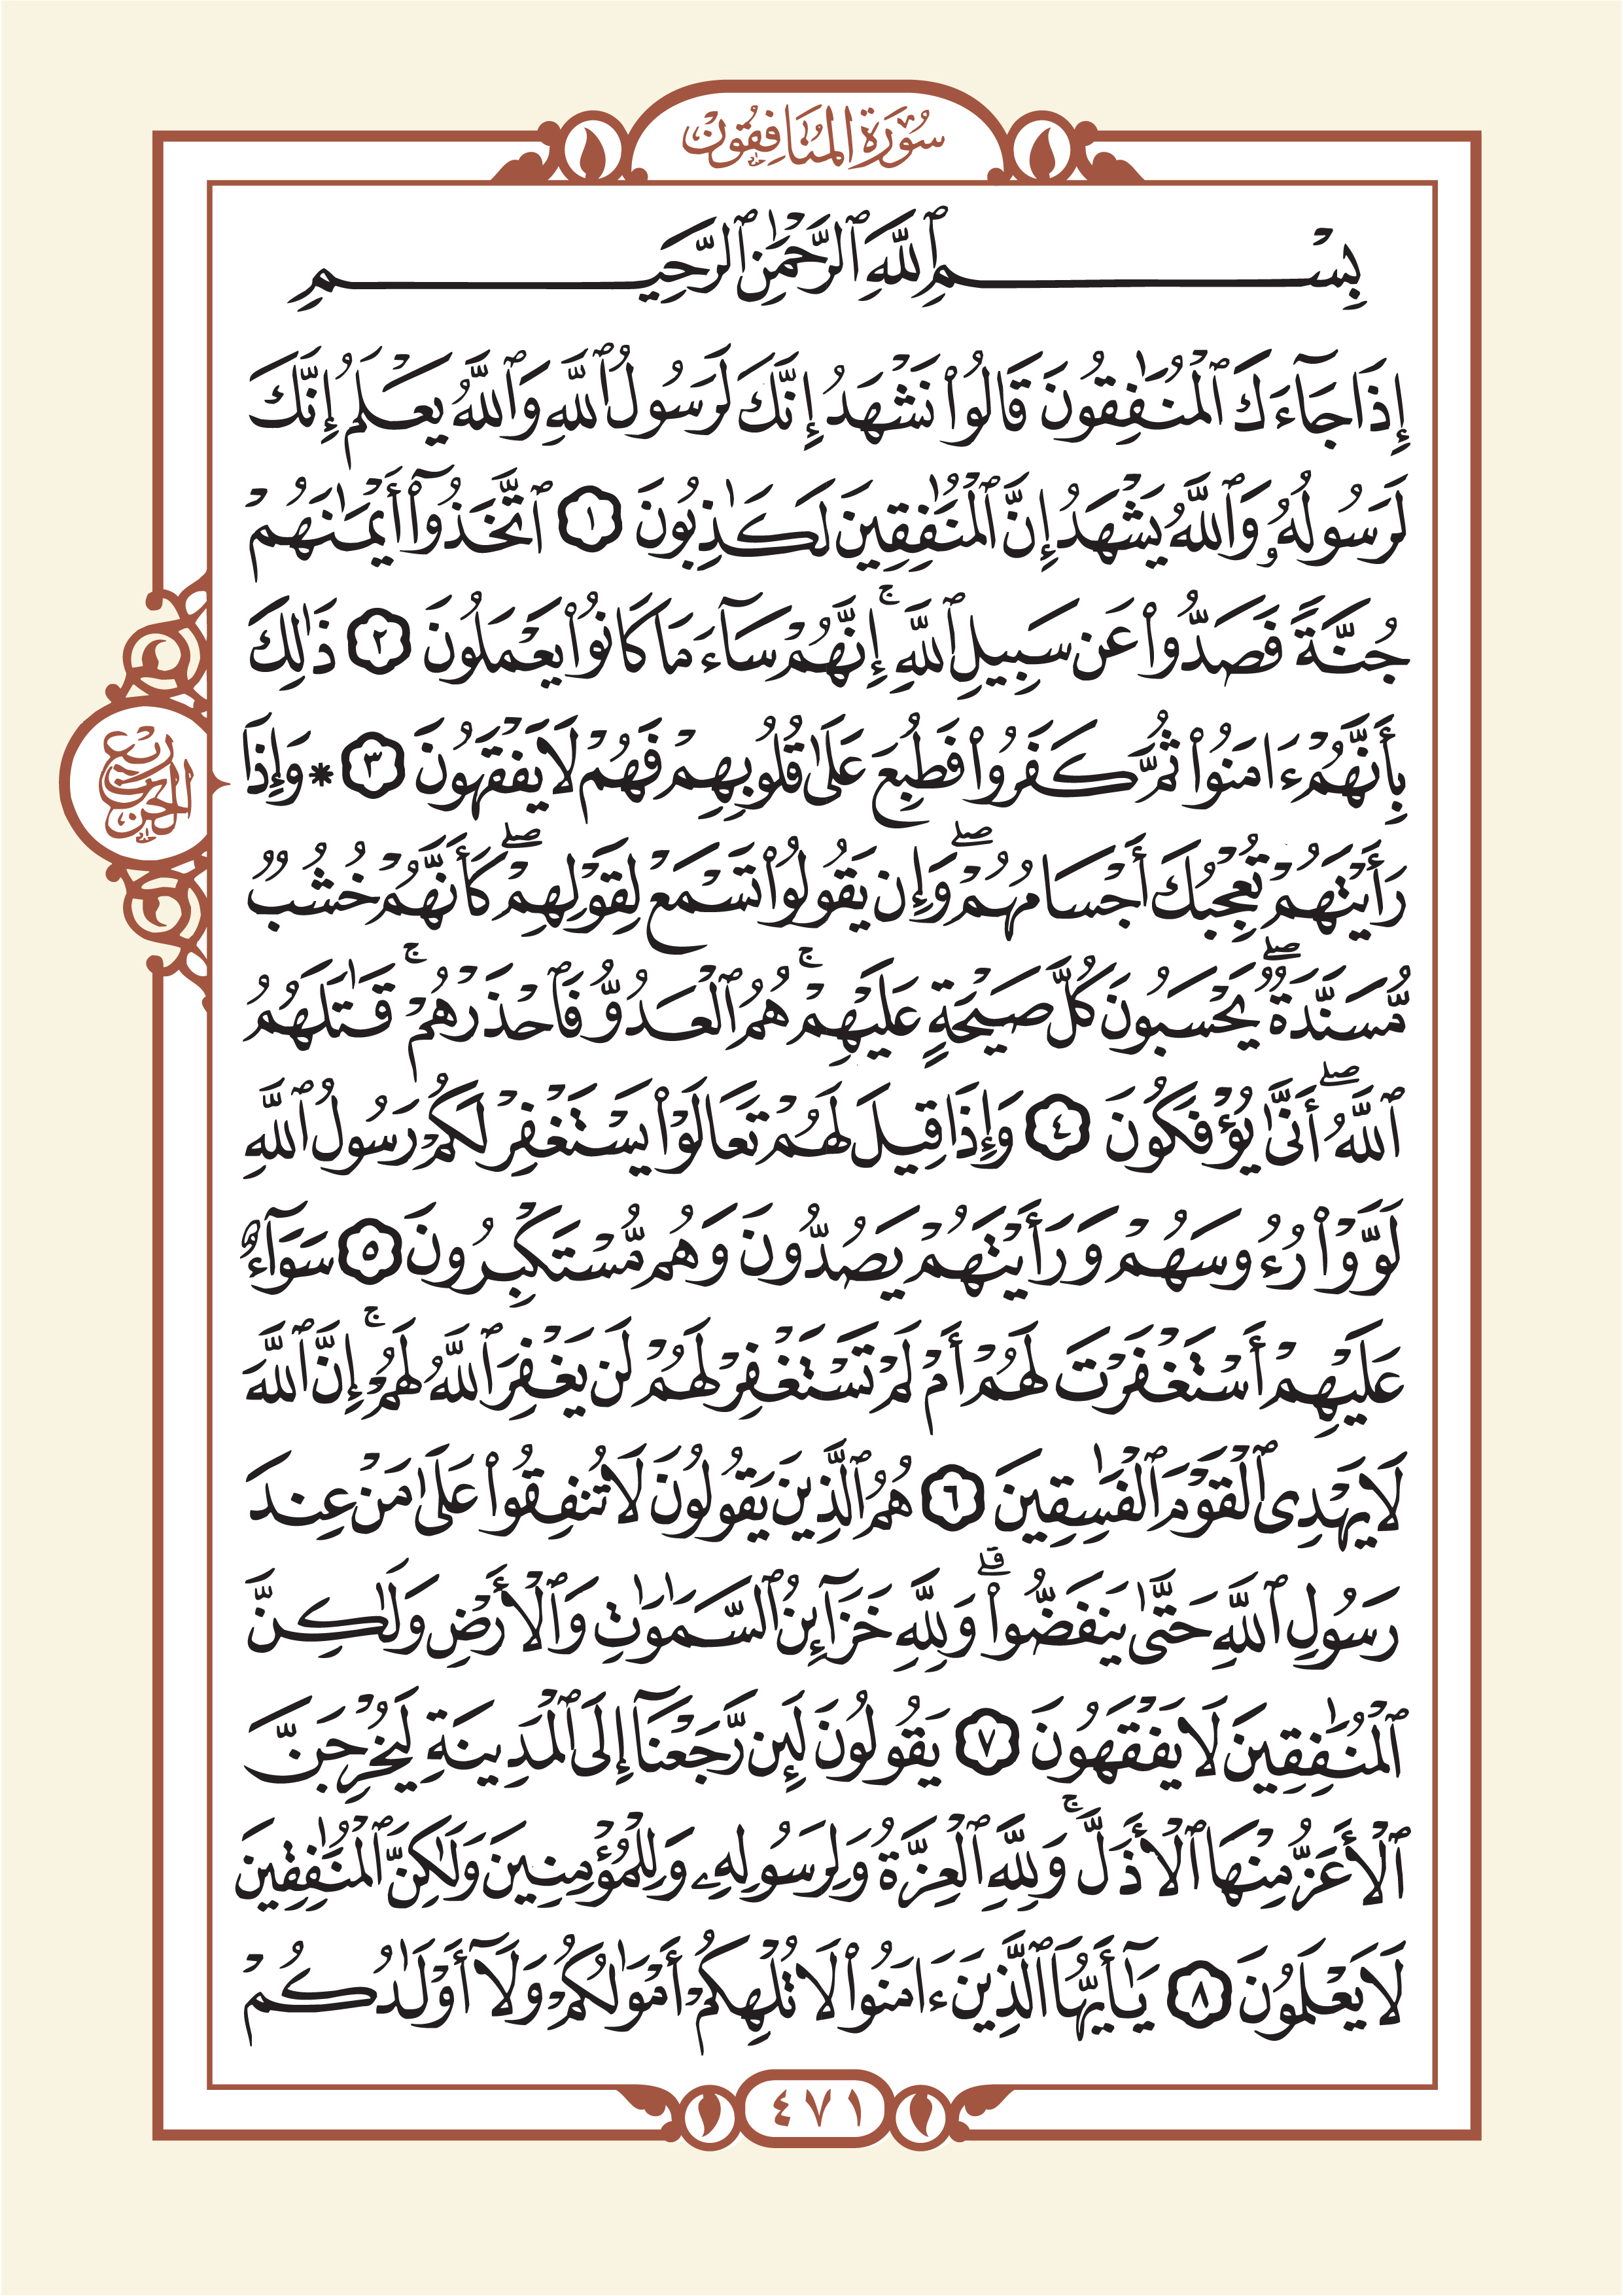 سُورَةُ المُنَافِقُون
بِسْمِ ٱللَّهِ ٱلرَّحْمَٰنِ ٱلرَّحِيمِ
إِذَا جَآءَكَ ٱلْمُنَٰفِقُونَ قَالُوا۟ نَشْهَدُ إِنَّكَ لَرَسُولُ ٱللَّهِ وَٱللَّهُ يَعْلَمُ إِنَّكَ
لَرَسُولُهُۥ وَٱللَّهُ يَشْهَدُ إِنَّ ٱلْمُنَٰفِقِينَ لَكَٰذِبُونَ ١ ٱتَّخَذُوٓا۟ أَيْمَٰنَهُمْ
جُنَّةً فَصَدُّوا۟ عَن سَبِيلِ ٱللَّهِ ۚ إِنَّهُمْ سَآءَ مَا كَانُوا۟ يَعْمَلُونَ ٢ ذَٰلِكَ
بِأَنَّهُمْ ءَامَنُوا۟ ثُمَّ كَفَرُوا۟ فَطُبِعَ عَلَىٰ قُلُوبِهِمْ فَهُمْ لَا يَفْقَهُونَ ٣ * وَإِذَا
رَأَيْتَهُمْ تُعْجِبُكَ أَجْسَامُهُمْ ۖ وَإِن يَقُولُوا۟ تَسْمَعْ لِقَوْلِهِمْ ۖ كَأَنَّهُمْ خُشُبٌ
مُّسَنَّدَةٌ ۖ يَحْسَبُونَ كُلَّ صَيْحَةٍ عَلَيْهِمْ ۚ هُمُ ٱلْعَدُوُّ فَٱحْذَرْهُمْ ۚ قَٰتَلَهُمُ
ٱللَّهُ ۖ أَنَّىٰ يُؤْفَكُونَ ٤ وَإِذَا قِيلَ لَهُمْ تَعَالَوْا۟ يَسْتَغْفِرْ لَكُمْ رَسُولُ ٱللَّهِ
لَوَّوْا۟ رُءُوسَهُمْ وَرَأَيْتَهُمْ يَصُدُّونَ وَهُم مُّسْتَكْبِرُونَ ٥ سَوَآءٌ
عَلَيْهِمْ أَسْتَغْفَرْتَ لَهُمْ أَمْ لَمْ تَسْتَغْفِرْ لَهُمْ لَن يَغْفِرَ ٱللَّهُ لَهُمْ ۚ إِنَّ ٱللَّهَ
لَا يَهْدِى ٱلْقَوْمَ ٱلْفَٰسِقِينَ ٦ هُمُ ٱلَّذِينَ يَقُولُونَ لَا تُنفِقُوا۟ عَلَىٰ مَنْ عِندَ
رَسُولِ ٱللَّهِ حَتَّىٰ يَنفَضُّوا۟ ۗ وَلِلَّهِ خَزَآئِنُ ٱلسَّمَٰوَٰتِ وَٱلْأَرْضِ وَلَٰكِنَّ
ٱلْمُنَٰفِقِينَ لَا يَفْقَهُونَ ٧ يَقُولُونَ لَئِن رَّجَعْنَآ إِلَى ٱلْمَدِينَةِ لَيُخْرِجَنَّ
ٱلْأَعَزُّ مِنْهَا ٱلْأَذَلَّ ۚ وَلِلَّهِ ٱلْعِزَّةُ وَلِرَسُولِهِۦ وَلِلْمُؤْمِنِينَ وَلَٰكِنَّ ٱلْمُنَٰفِقِينَ
لَا يَعْلَمُونَ ٨ يَٰٓأَيُّهَا ٱلَّذِينَ ءَامَنُوا۟ لَا تُلْهِكُمْ أَمْوَٰلُكُمْ وَلَآ أَوْلَٰدُكُمْ
ربع الحزب
٤٧١